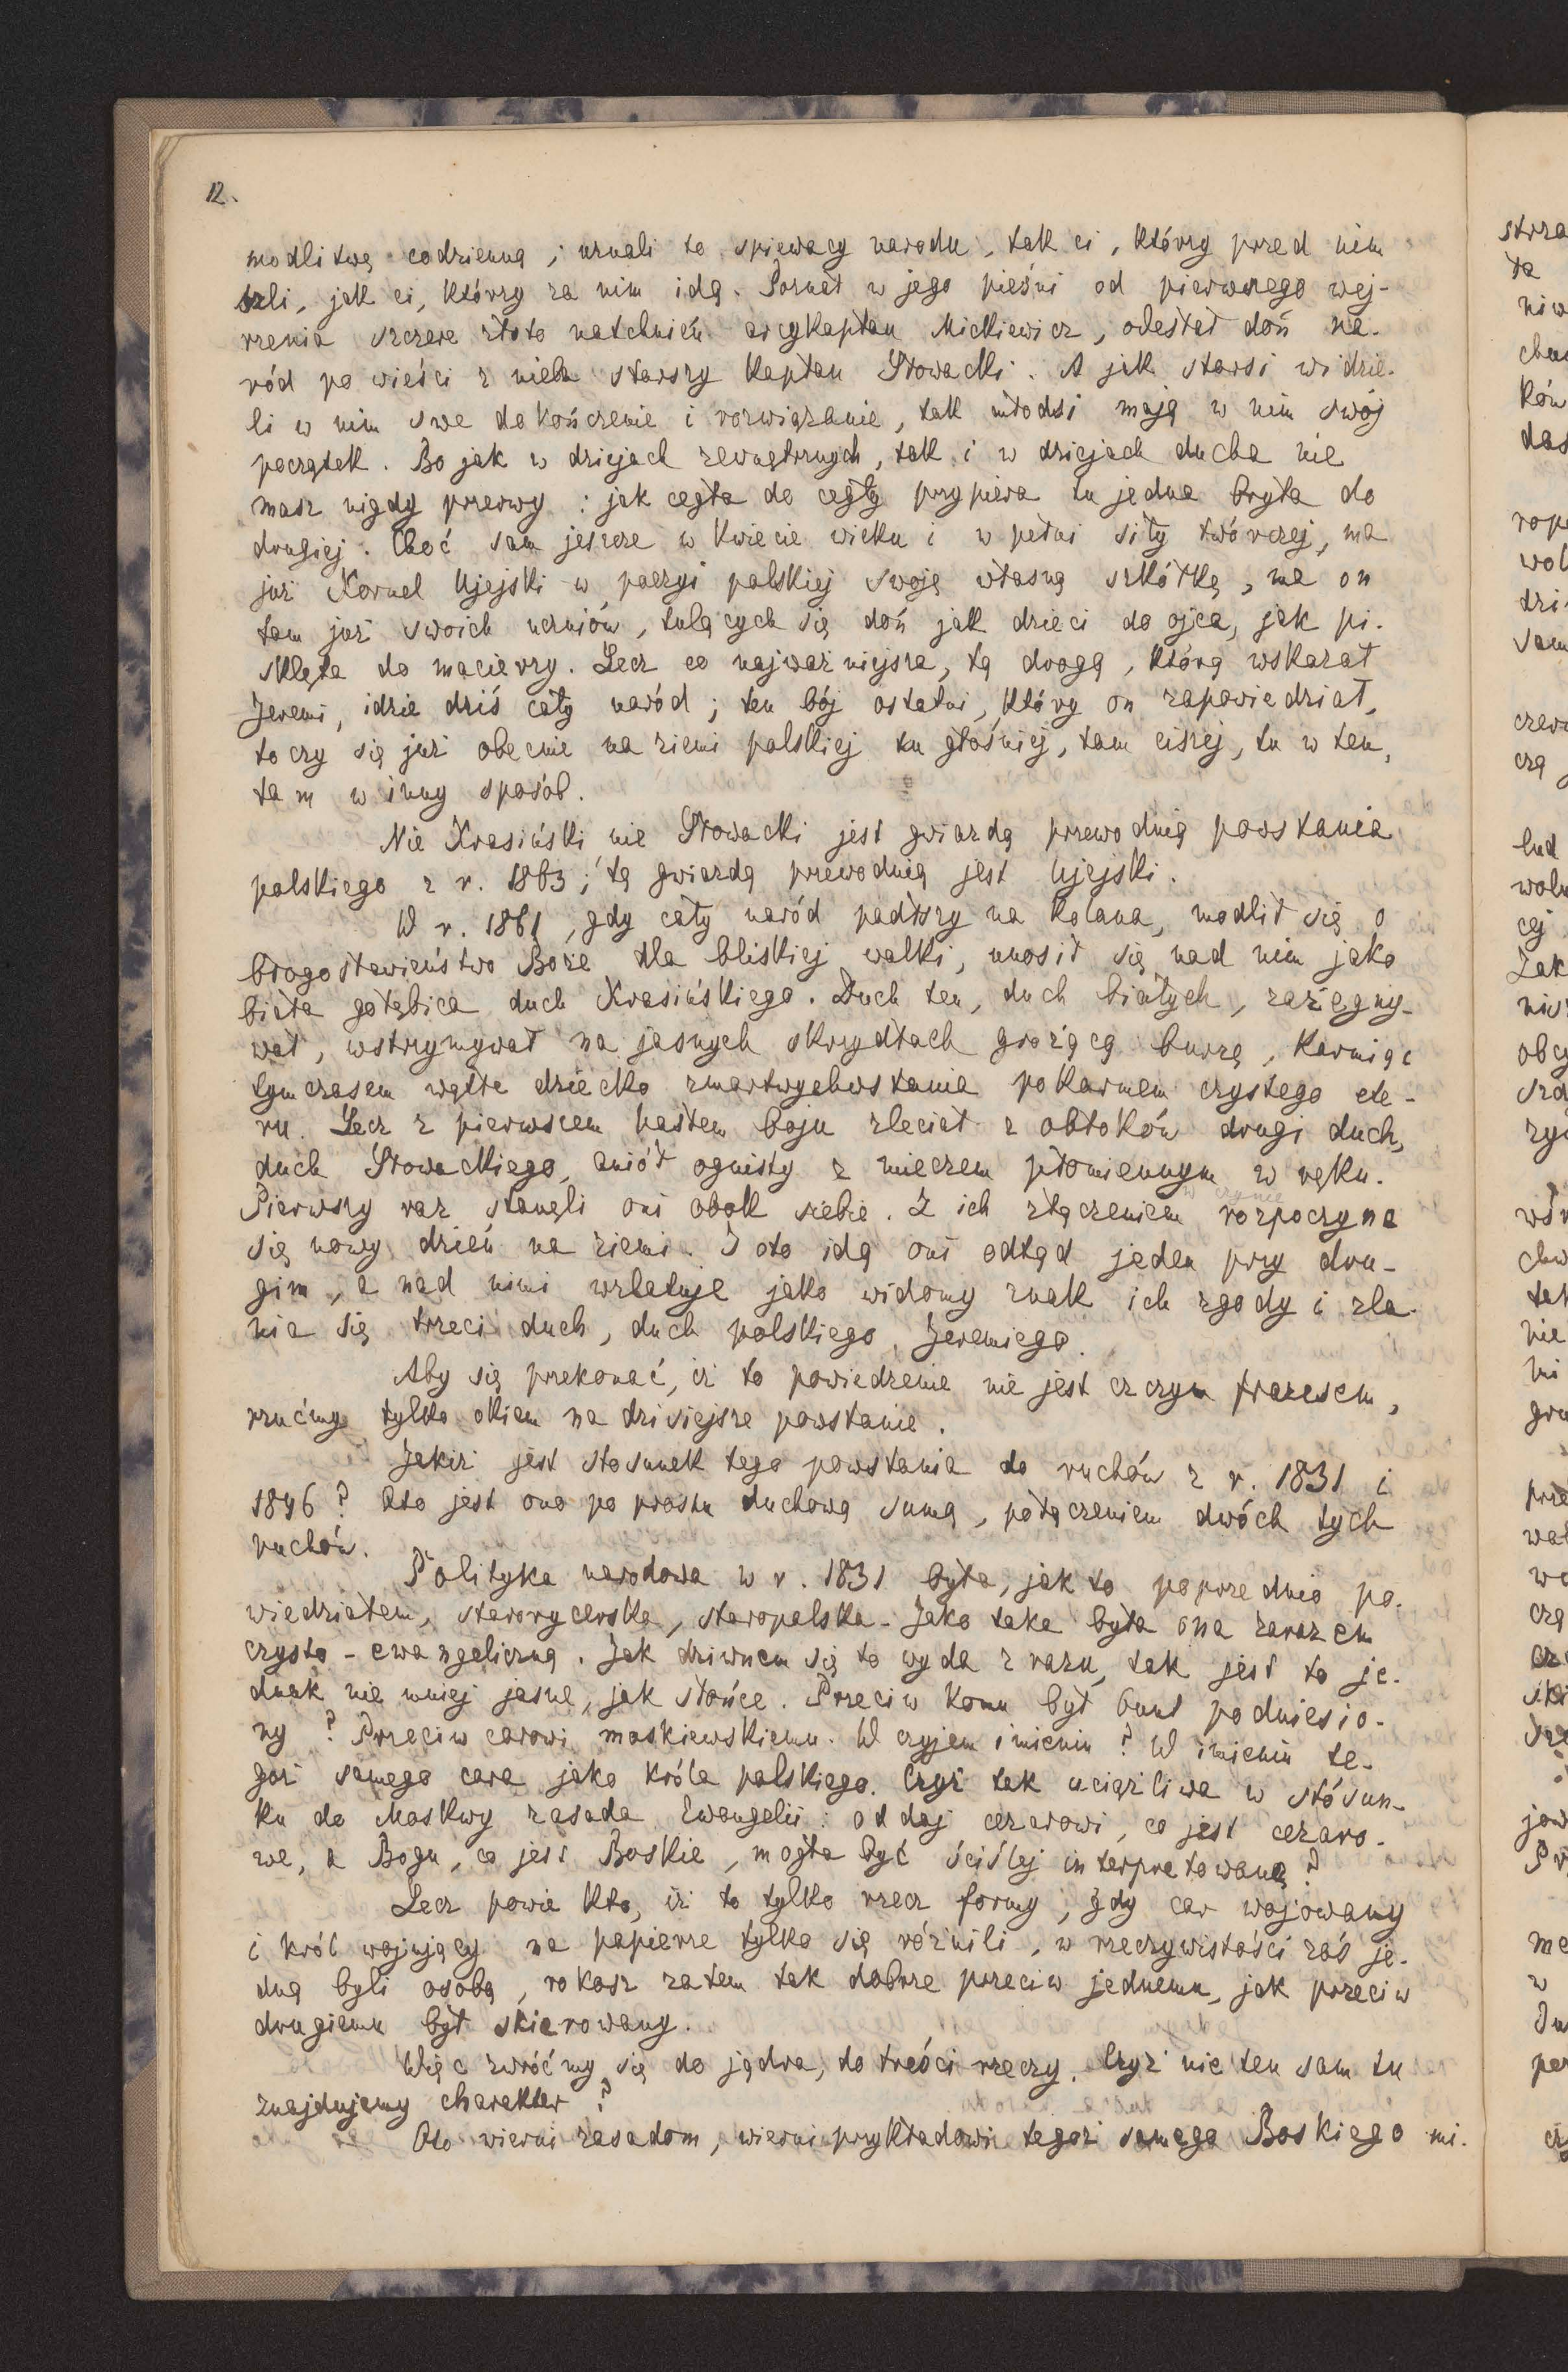 12.
modlitwę codzienną; uznali to śpiewacy narodu, tak ci, którzy przed nim
szli, jak ci, którzy za nim idą. Poznał w jego pieśni od pierwszego wej-
rzenia szczere złoto natchnień arcykapłan Mickiewicz, odesłał doń na-
ród po wieści z nieba starszy kapłan Słowacki. A jak starsi widzie-
li w nim swe dokończenie i rozwiązanie, tak młodsi mają w nim swój
początek. Bo jak w dziejach zewnętrznych, tak i w dziejach ducha nie
masz nigdy przerwy: jak cegła do cegły przypiera tu jedna bryła do
drugiej. Choć sam jeszcze w kwiecie wieku i w pełni siły twórczej, ma
już Kornel Ujejski w poezyi polskiej swoją własną szkółkę, ma on
tam już swoich uczniów, tulących się doń jak dzieci do ojca, jak pi-
sklęta do macierzy. Lecz co najważniejsza, tą drogą, którą wskazał
Jeremi, idzie dziś cały naród; ten bój ostatni, który on zapowiedział,
toczy się już obecnie na ziemi polskiej tu głośniej, tam ciszej, tu w ten,
tam w inny sposób.
Nie Krasiński nie Słowacki jest gwiazdą przewodnią powstania
polskiego z r. 1863; tą gwiazdą przewodnią jest Ujejski.
W r. 1861, gdy cały naród padłszy na kolana, modlił się o
błogosławieństwo Boże dla bliskiej walki, unosił się nad nim jako
biała gołębica duch Krasińskiego. Duch ten, duch białych, zażegny-
wał, wstrzymywał na jasnych skrzydłach grożącą burzę, karmiąc
tymczasem wątłe dziecko zmartwychwstania pokarmem czystego ete-
ru. Lecz z pierwszem hasłem boju zleciał z obłoków drugi duch,
duch Słowackiego, anioł ognisty z mieczem płomiennym w ręku.
Pierwszy raz stanęli oni obok siebie. Z ich złączeniem w czynie rozpoczyna
się nowy dzień na ziemi. I oto idą oni odtąd jeden przy dru-
gim, a nad nimi wzlatuje jako widomy znak ich zgody i zla-
nia się trzeci duch, duch polskiego Jeremiego.
Aby się przekonać, iż to powiedzenie nie jest czczym frazesem,
rzućmy tylko okiem na dzisiejsze powstanie.
Jakiż jest stosunek tego powstania do ruchów z r. 1831 i
1846? Oto jest ono po prostu duchową sumą, połączeniem dwóch tych
ruchów.
Polityka narodowa w r. 1831 była, jak to poprzednio po-
wiedziałem, starorycerska, staropolska. Jako taka była ona zarazem
czysto-ewangeliczną. Jak dziwnem się to wyda z razu, tak jest to je-
dnak nie mniej jasne, jak słońce. Przeciw komu był bunt podniesio-
ny? Przeciw carowi moskiewskiemu. W czyjem imieniu? W imieniu te-
goż samego cara jako króla polskiego. Czyż tak uciążliwa w stósun-
ku do Moskwy zasada Ewangelii: oddaj cezarowi, co jest cezaro-
we, a Bogu, co jest Boskie, mogła być ściślej interpretowaną?
Lecz powie kto, iż to tylko rzecz formy, gdy car wojowany
i król wojujący na papierze tylko się różnili, w rzeczywistości zaś je-
dną byli osobą, rokosz zatem tak dobrze przeciw jednemu, jak przeciw
drugiemu był skierowany.
Więc zwróćmy się do jądra, do treści rzeczy. Czyż nie ten sam tu
znajdujemy charakter?
Oto wierni zasadom, wierni przykładowi tegoż samego Boskiego mi-